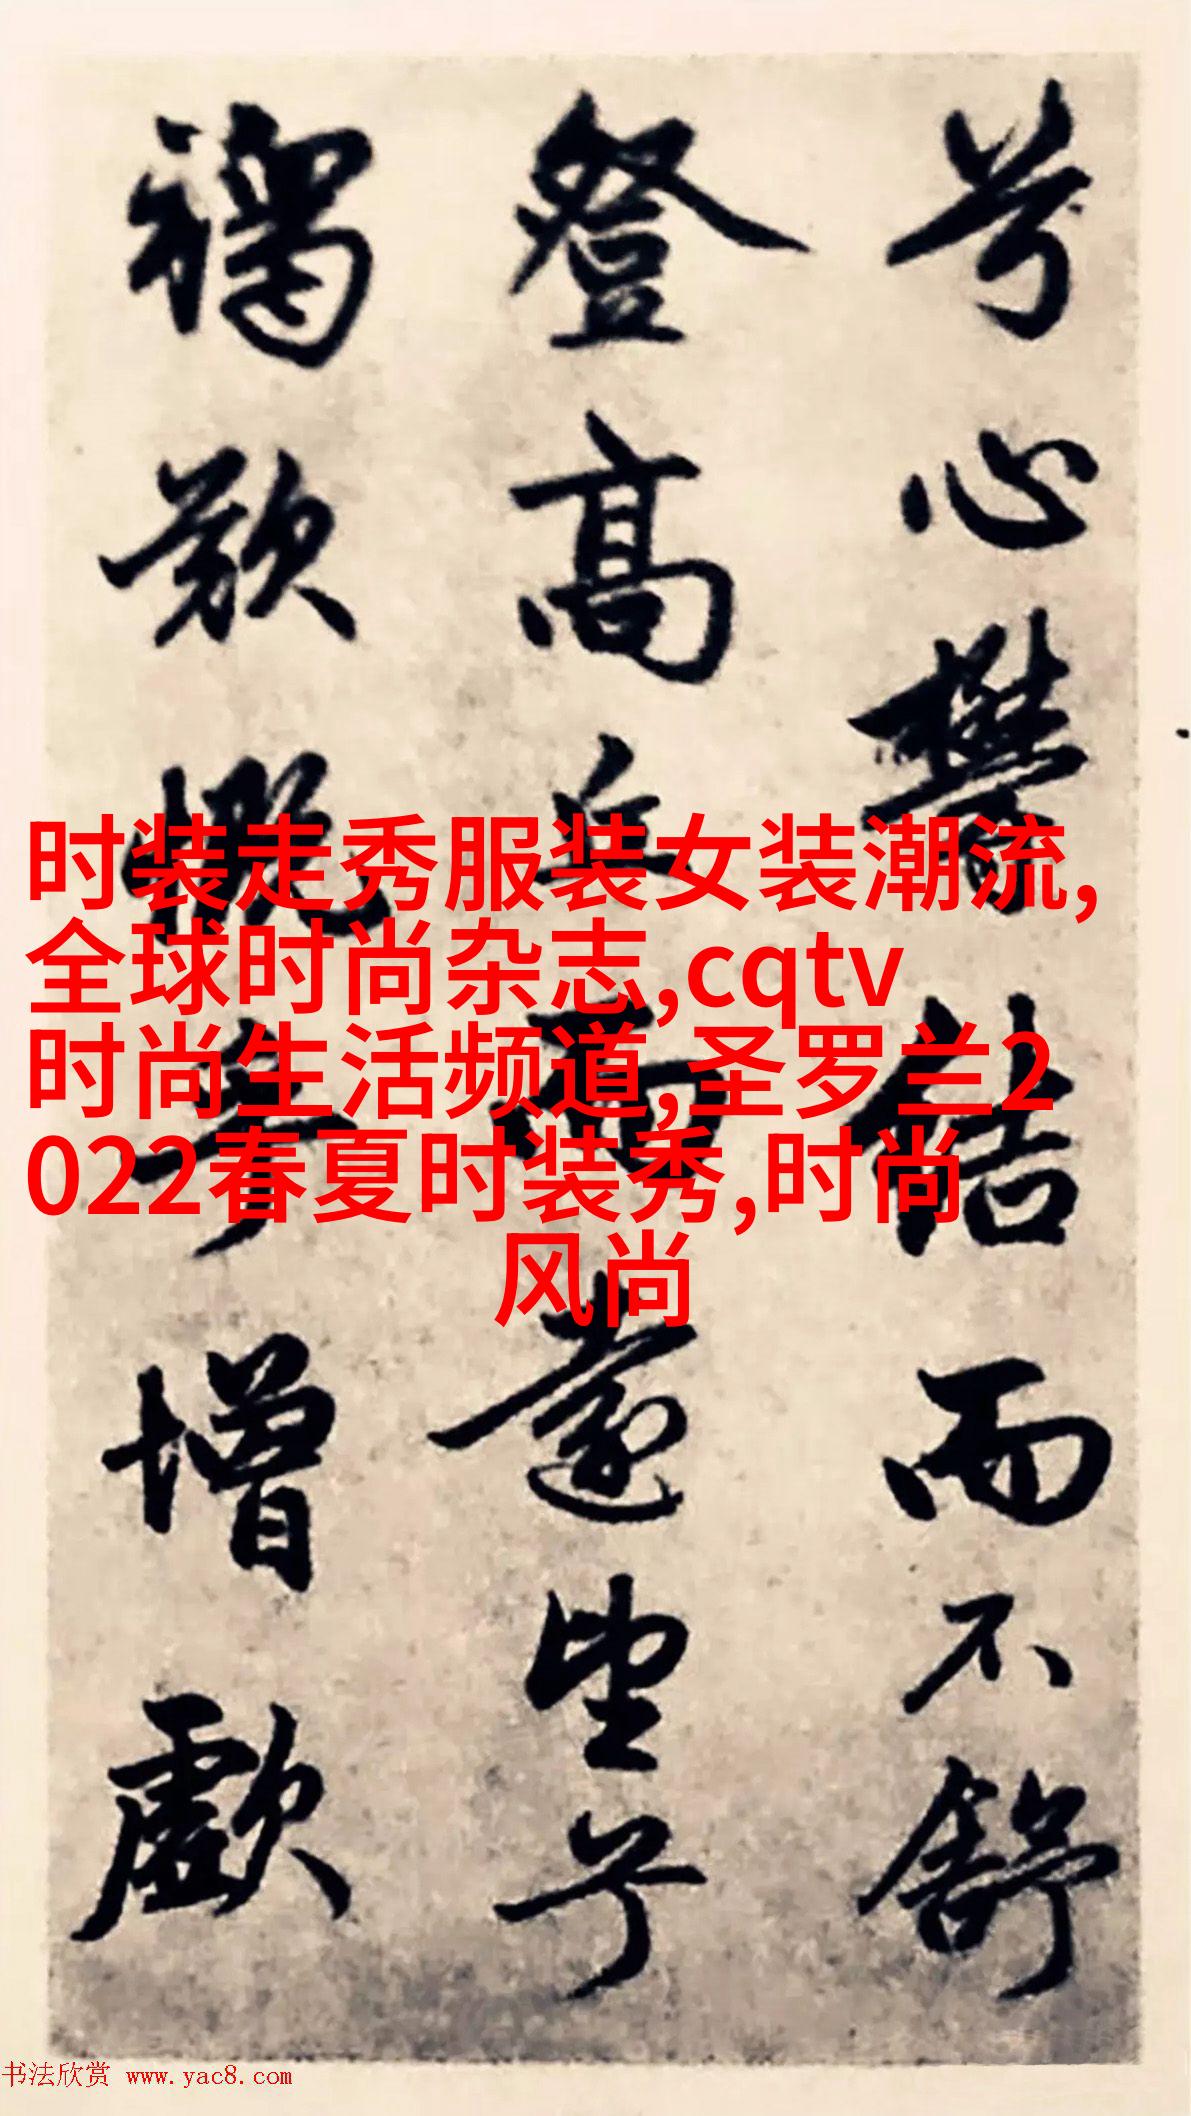 兮心鬱結而不舒
登高丘而遠望兮
歎慨兮增歔
时装走秀服装女装潮流,
全球时尚杂志,cqtv
时尚生活频道,圣罗兰2
022春夏时装秀,时尚
风尚
书法欣赏 www.yac8.com